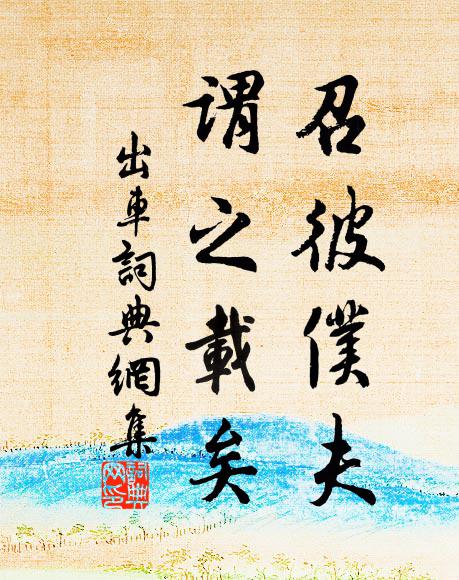 召彼僕夫
謂之載矣
出車詞典網集